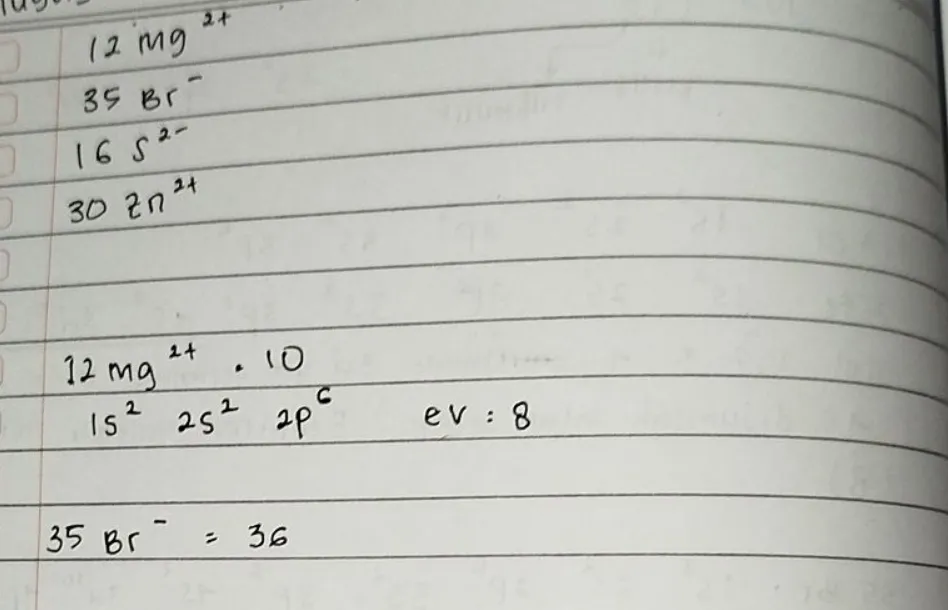 12 mg²⁺
35 Br⁻
16 S²⁻
30 Zn²⁺
12 mg²⁺ . 10
1s² 2s² 2p⁶ ev : 8
35 Br⁻ = 36